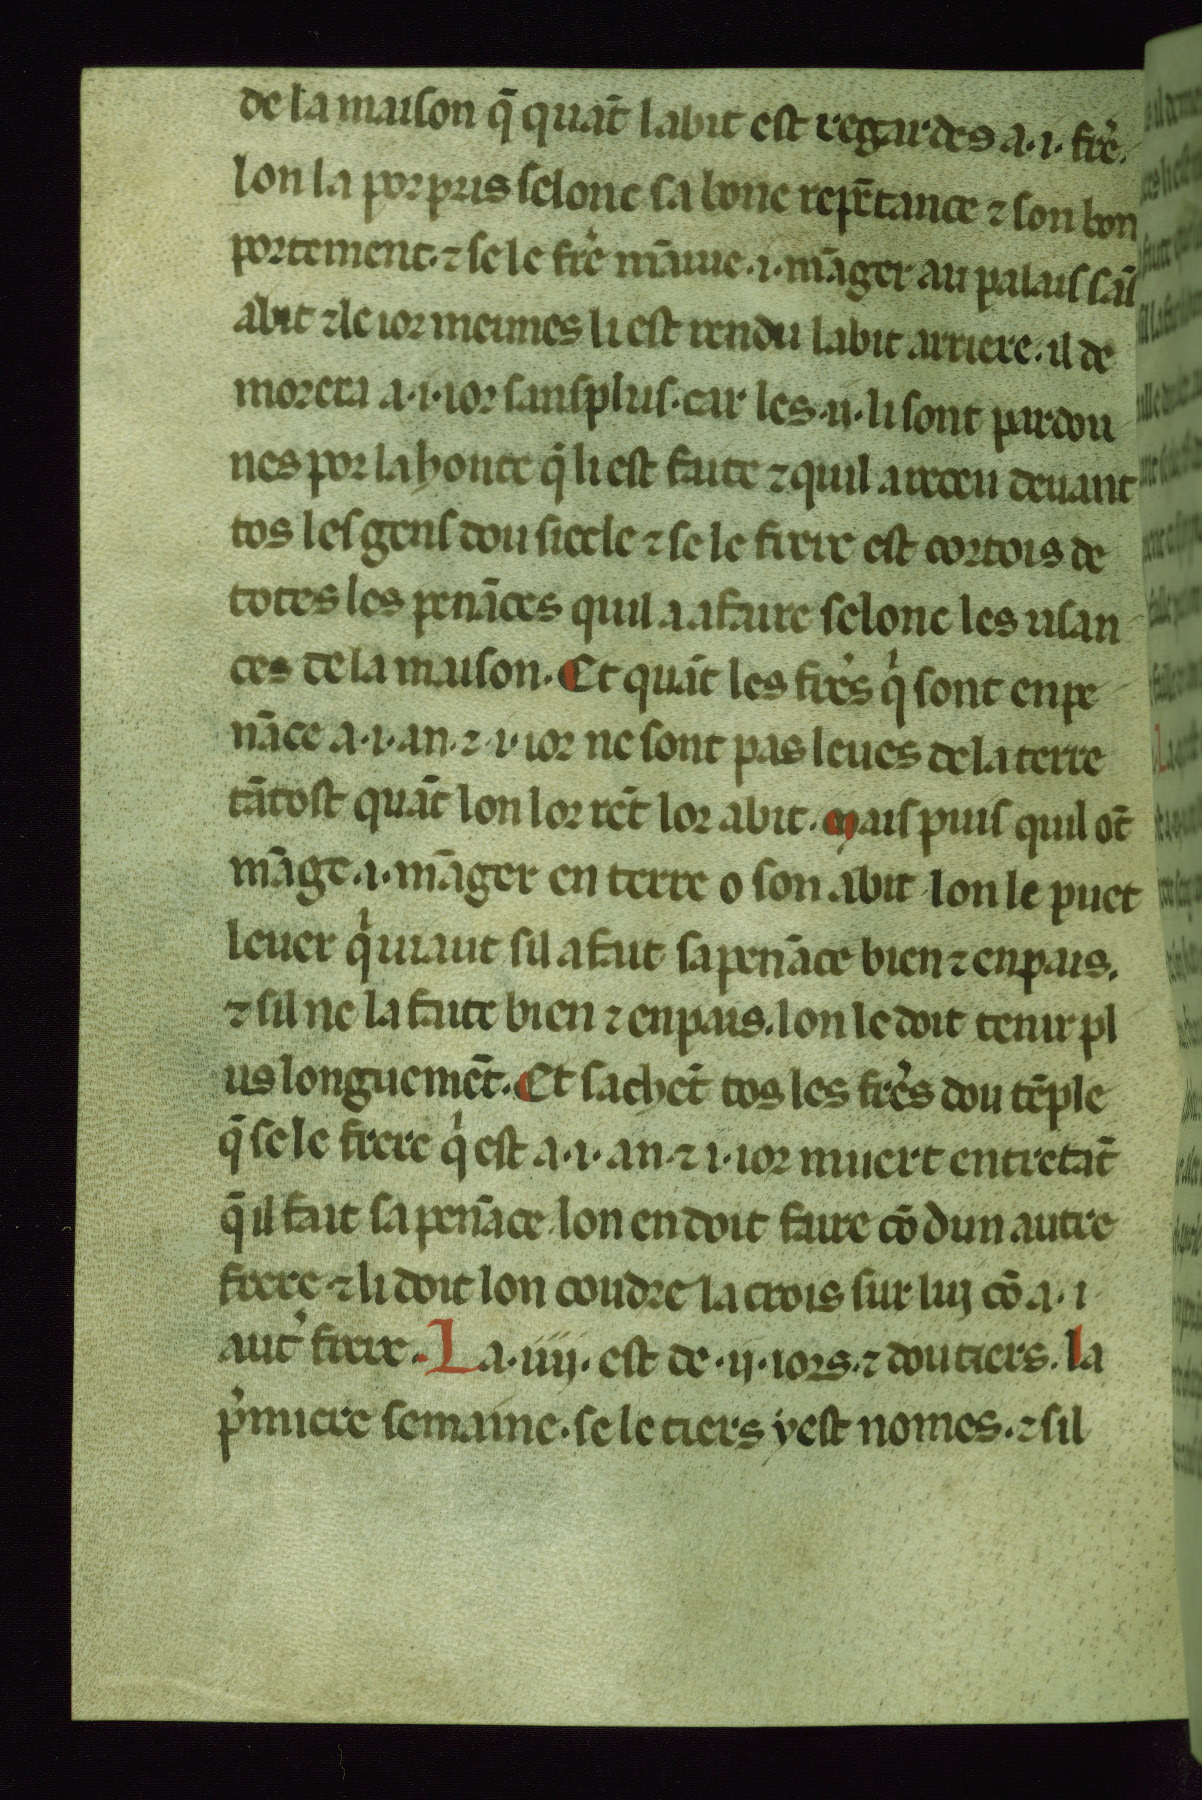 de la maison q̄ quāt labit est regardes a·i· frē.
lon la porpris selonc sa bone repētance ⁊ son bon
portement·⁊ se le frē māiue·i·māger au palais sās
abit ⁊ le ior meimes li est rendu labit arriere·il de
morera a·i·ior sans plus·car les·ii·li sont pardou
nes por la honte q̄ li est faite ⁊ quil a receu deuant
tos les gens dou siecle ⁊ se le frere est cortois de
totes les penāces quil a a faire selonc les usan
ces de la maison·Et quāt les frēs qⁱ sont en pe
nāce a·i·an·⁊·i·ior ne sont pas leues de la terre
tātost quāt lon lor rēt lor abit·mais puis quil ōt
māge·i·māger en terre o son abit lon le puet
leuer qⁱ uiaut sil a fait sa penāce bien ⁊ enpais.
⁊ sil ne la faite bien ⁊ enpais·lon le doit tenir pl
us longuemēt·Et sachēt tos les frēs dou tēple
q̄ se le frere qⁱ est a·i·an·⁊ i·ior muert entretāt
q̄ il fait sa penāce lon en doit faire cō dun autre
frere ⁊ li doit lon coudre la crois sur luj cō a·i
aut' frere·La·iiij·est de·ij·iors·⁊ dou tiers·la
pⁱmiere semaine·se le tiers y est nomes·⁊ sil